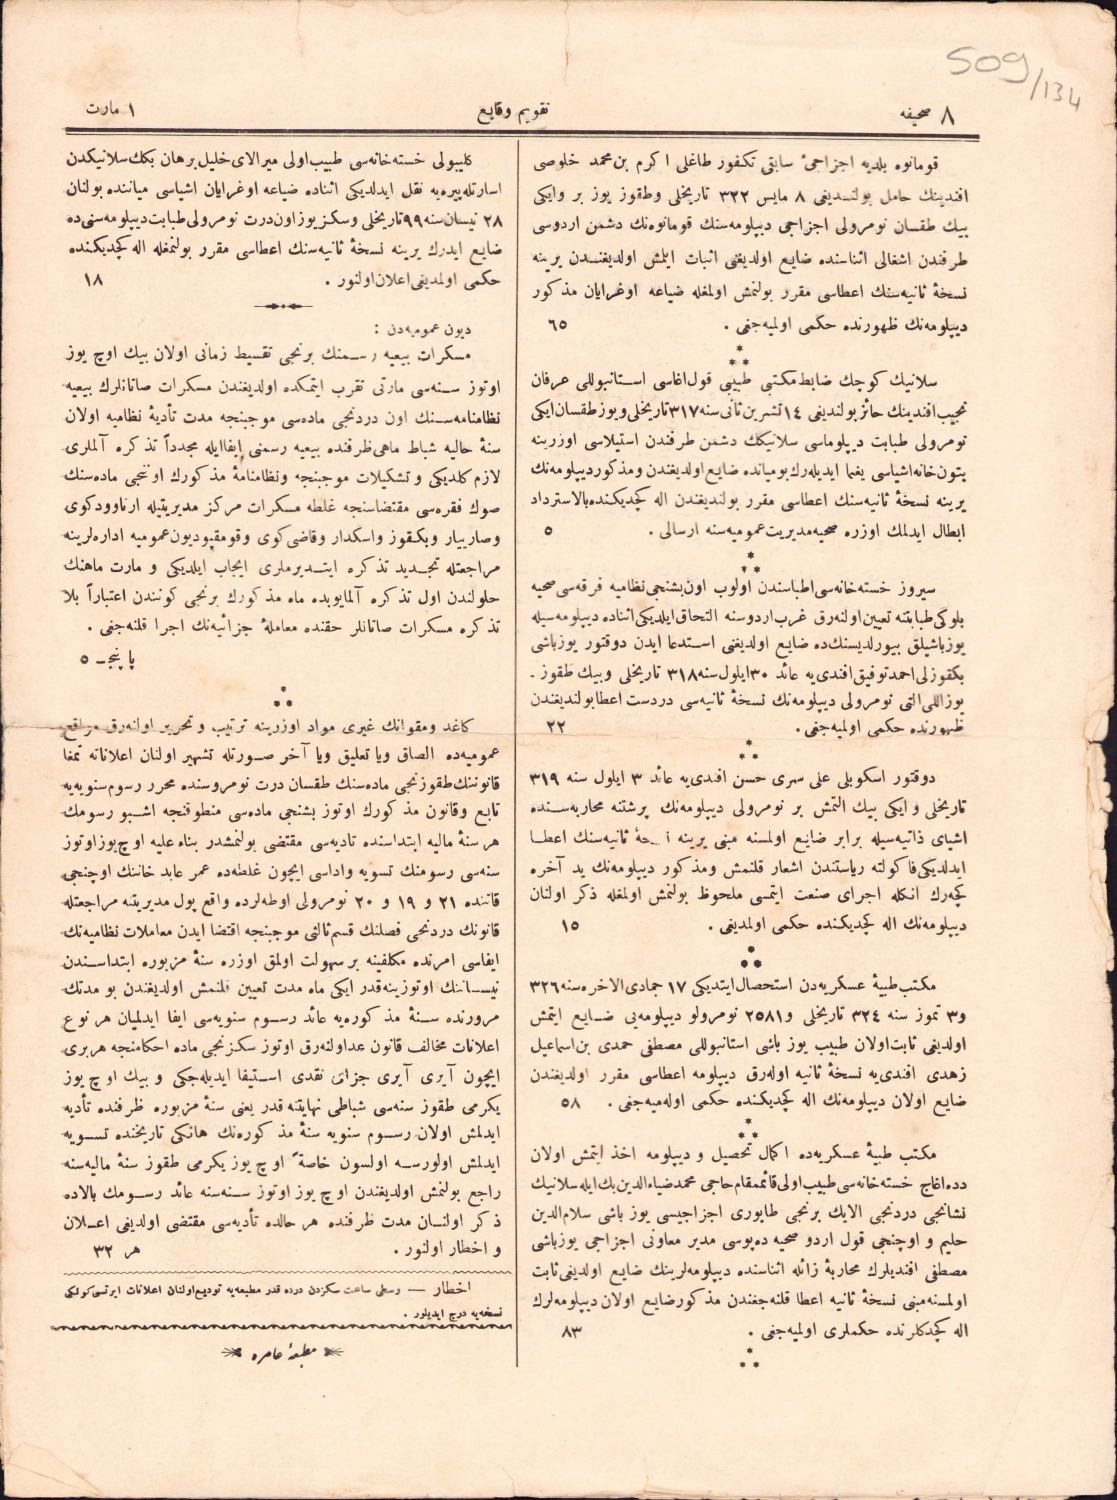 509/134
٨ صحيفه
تقويم وقايع
١ مارت
قومانوه بلديه اجزاجی‌ٔ سابقی تكفور طاغلی اكرم بن محمد خلوصی
افندينك حامل بولنديغی ٨ مايس ٣٢٢ تاريخلی وطقوز يوز بر وايكی
بيك طقسان نومرولی اجزاجی ديپلومه‌سنك قومانوه‌نك دشمن اردوسی
طرفندن اشغالی اثناسنده ضايع اولديغنی اثبات ايلمش اولديغندن يرينه
نسخهٔ ثانيه‌سنك اعطاسی مقرر بولنمش اولمغله ضياعه اوغرايان مذكور
ديپلومه‌نك ظهورنده حكمی اوليه‌جغی . ٦٥
سلانيك كوچك ضابط مكتبی طبيبی قول اغاسی استانبوللی عرفان
نجيب افندينك حائز بولنديغی ١٤ تشرين ثانی سنه ٣١٧ تاريخلی ويوز طقسان ايكی
نومرولی طبابت ديپلوماسی سلانيكك دشمن طرفندن استيلاسی اوزرينه
بتون خانه اشياسی يغما ايديله‌رك بوميانده ضايع اولديغندن ومذكور ديپلومه‌نك
يرينه نسخهٔ ثانيه‌سنك اعطاسی مقرر بولنديغندن اله كچديكنده بالاسترداد
ابطال ايدلمك اوزره صحيه مديريت عموميه‌سنه ارسالی . ٥
سيروز خسته‌خانه‌سی اطباسندن اولوب اون بشنجی نظاميه فرقه‌سی صحيه
بلوكی طبابتنه تعيين اولنه‌رق غرب اردوسنه التحاق ايلديكی اثناده ديپلومه‌سيله
يوزباشيلق بيورلديسنك‌ده ضايع اولديغنی استدعا ايدن دوقتور يوزباشی
بكقوزلی احمد توفيق افندی‌يه عائد ٣٠ ايلول سنه ٣١٨ تاريخلی وبيك طقوز -
يوز اللی التی نومرولی ديپلومه‌نك نسخهٔ ثانيه‌سی دردست اعطا بولنديغندن
ظهورنده حكمی اوليه‌جغی . ٢٢
دوقتور اسكوبلی علی سهری حسن افندی‌يه عائد ٣ ايلول سنه ٣١٩
تاريخلی وايكی بيك التمش بر نومرولی ديپلومه‌نك پرشتنه محاربه‌سنده
اشيای ذاتيه‌سيله برابر ضايع اولمسنه مبنی يرينه ثانيه‌سنك اعطا
ايدلديكی فاكولته رياستندن اشعار قلنمش ومذكور ديپلومه‌نك يد آخره
كچه‌رك انكله اجرای صنعت ايتمسی ملحوظ بولنمش اولمغله ذكر اولنان
ديپلومه‌نك اله كچديكنده حكمی اولمديغی . ١٥
مكتب طبيهٔ عسكريه‌دن استحصال ايتديكی ١٧ جمادی الاخره سنه ٣٢٦
و٣ تموز سنه ٣٢٤ تاريخلی و٢٥٨١ نومرولو ديپلومه‌يی ضايع ايتمش
اولديغی ثابت اولان طبيب يوز باشی استانبوللی مصطفی حمدی بن اسماعيل
زهدی افندی‌يه نسخهٔ ثانيه اوله‌رق ديپلومه اعطاسی مقرر اولديغندن
ضايع اولان ديپلومه‌نك اله كچديكنده حكمی اوله‌ميه‌جغی . ٥٨
مكتب طبيهٔ عسكريه‌ده اكمال تحصيل و ديپلومه اخذ ايتمش اولان
دده‌اغاج خسته‌خانه‌سی طبيب اولی قائممقام حاجی محمد ضياءالدين بك ايله سلانيك
نشانجی دردنجی الايك برنجی طابوری اجزاجيسی يوز باشی سلام الدين
حليم و اوچنجی قول اردو صحيه ده‌پوسی مدير معاونی اجزاجی يوزباشی
مصطفی افنديلرك محاربهٔ زائله اثناسنده ديپلومه‌لرينك ضايع اولديغی ثابت
اولمسنه مبنی نسخهٔ ثانيه اعطا قلنه‌جغندن مذكور ضايع اولان ديپلومه‌لرك
اله كچدكلرنده حكملری اوليه‌جغی . ٨٣
كليبولی خسته‌خانه‌سی طبيب اولی ميرالای خليل برهان بكك سلانيكدن
اسارتله پيره‌يه نقل ايدلديكی اثناده ضياعه اوغرايان اشياسی مياننده بولنان
٢٨ نيسان سنه ٩٩ تاريخلی وسكز يوز اون درت نومرولی طبابت ديپلومه‌سنی‌ده
ضايع ايدرك يرينه نسخهٔ ثانيه‌سنك اعطاسی مقرر بولنمغله اله كچديكنده
حكمی اولمديغی اعلان اولنور . ١٨
ديون عموميه‌دن :
مسكرات بيعيه رسمنك برنجی تقسيط زمانی اولان بيك اوچ يوز
اوتوز سنه‌سی مارتی تقرب ايتمكده اولديغندن مسكرات صاتانلرك بيعيه
نظامنامه‌سنك اون دردنجی ماده‌سی موجبنجه مدت تأديهٔ نظاميه اولان
سنهٔ حاليه شباط ماهی ظرفنده بيعيه رسمنی ايفا ايله مجدداً تذكره آلملری
لازم كلديكی وتشكيلات موجبنجه ونظامنامهٔ مذكورك اوننجی ماده‌سنك
صوك فقره‌سی مقتضاسنجه غلطه مسكرات مركز مديريتيله ارناوودكوی
وصاريیار وبكقوز واسكدار وقاضی‌كوی وقومقپو ديون عموميه اداره‌لرينه
مراجعتله تجديد تذكره ايتديرملری ايجاب ايلديكی و مارت ماهنك
حلولندن اول تذكره آلمايوبده ماه مذكورك برنجی كونندن اعتباراً بلا
تذكره مسكرات صاتانلر حقنده معاملهٔ جزائيه‌نك اجرا قلنه‌جغی .
پا پنج - ٥
كاغد ومقوانك غيری مواد اوزرينه ترتيب و تحرير اولنه‌رق مواقع
عموميه‌ده الصاق ويا تعليق ويا آخر صورتله تشهير اولنان اعلاناته تمغا
قانوننك طقوزنجی ماده‌سنك طقسان درت نومروسنده محرر رسوم سنويه‌يه
تابع وقانون مذكورك اوتوز بشنجی ماده‌سی منطوقنجه اشبو رسومك
هر سنهٔ ماليه ابتداسنده تاديه‌سی مقتضی بولنمشدر بناء عليه اوچ يوز اوتوز
سنه‌سی رسومنك تسويه واداسی ايچون غلطه‌ده عمر عابد خاننك اوچنجی
قاتنده ٢١ و ١٩ و ٢٠ نومرولی اوطه‌لرده واقع پول مديريتنه مراجعتله
قانونك دردنجی فصلنك قسم ثالثی موجبنجه اقتضا ايدن معاملات نظاميه‌نك
ايفاسی امرنده مكلفينه بر سهولت اولمق اوزره سنهٔ مزبوره ابتداسندن
نيساننك اوتوزينه قدر ايكی ماه مدت تعيين قلنمش اولديغندن بو مدتك
مرورنده سنهٔ مذكوره‌يه عائد رسوم سنويه‌سی ايفا ايدلميان هر نوع
اعلانات مخالف قانون عد اولنه‌رق اوتوز سكزنجی ماده احكامنجه هر بری
ايچون آيری آيری جزای نقدی استيفا ايديله‌جكی و بيك اوچ يوز
يكرمی طقوز سنه‌سی شباطی نهايتنه قدر يعنی سنهٔ مزبوره ظرفنده تأديه
ايدلمش اولان رسوم سنويه سنهٔ مذكوره‌نك هانكی تاريخنده تسويه
ايدلمش اولورسه اولسون خاصةً اوچ يوز يكرمی طقوز سنهٔ ماليه‌سنه
راجع بولنمش اولديغندن اوچ يوز اوتوز سنه‌سنه عائد رسومك بالاده
ذكر اولنان مدت ظرفنده هر حالده تأديه‌سی مقتضی اولديغی اعلان
و اخطار اولنور . هر ٣٢
اخطار — وسطی ساعت سكزدن درده قدر مطبعه‌يه توديع اولنان اعلانات ايرتسی كونكی
نسخه‌يه درج ايديلور .
مطبعهٔ عامره